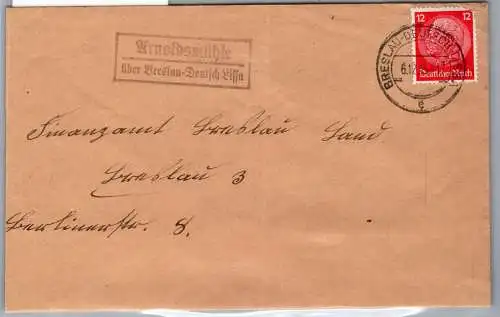 Arnoldsmühle
über Breslau-Deutsch Lissa
12 12
Deutsches Reich
BRESLAU-DEUTSCH LISSA
6.12
e
Finanzamt Breslau Land
Breslau 3
Berlinerstr. 8.